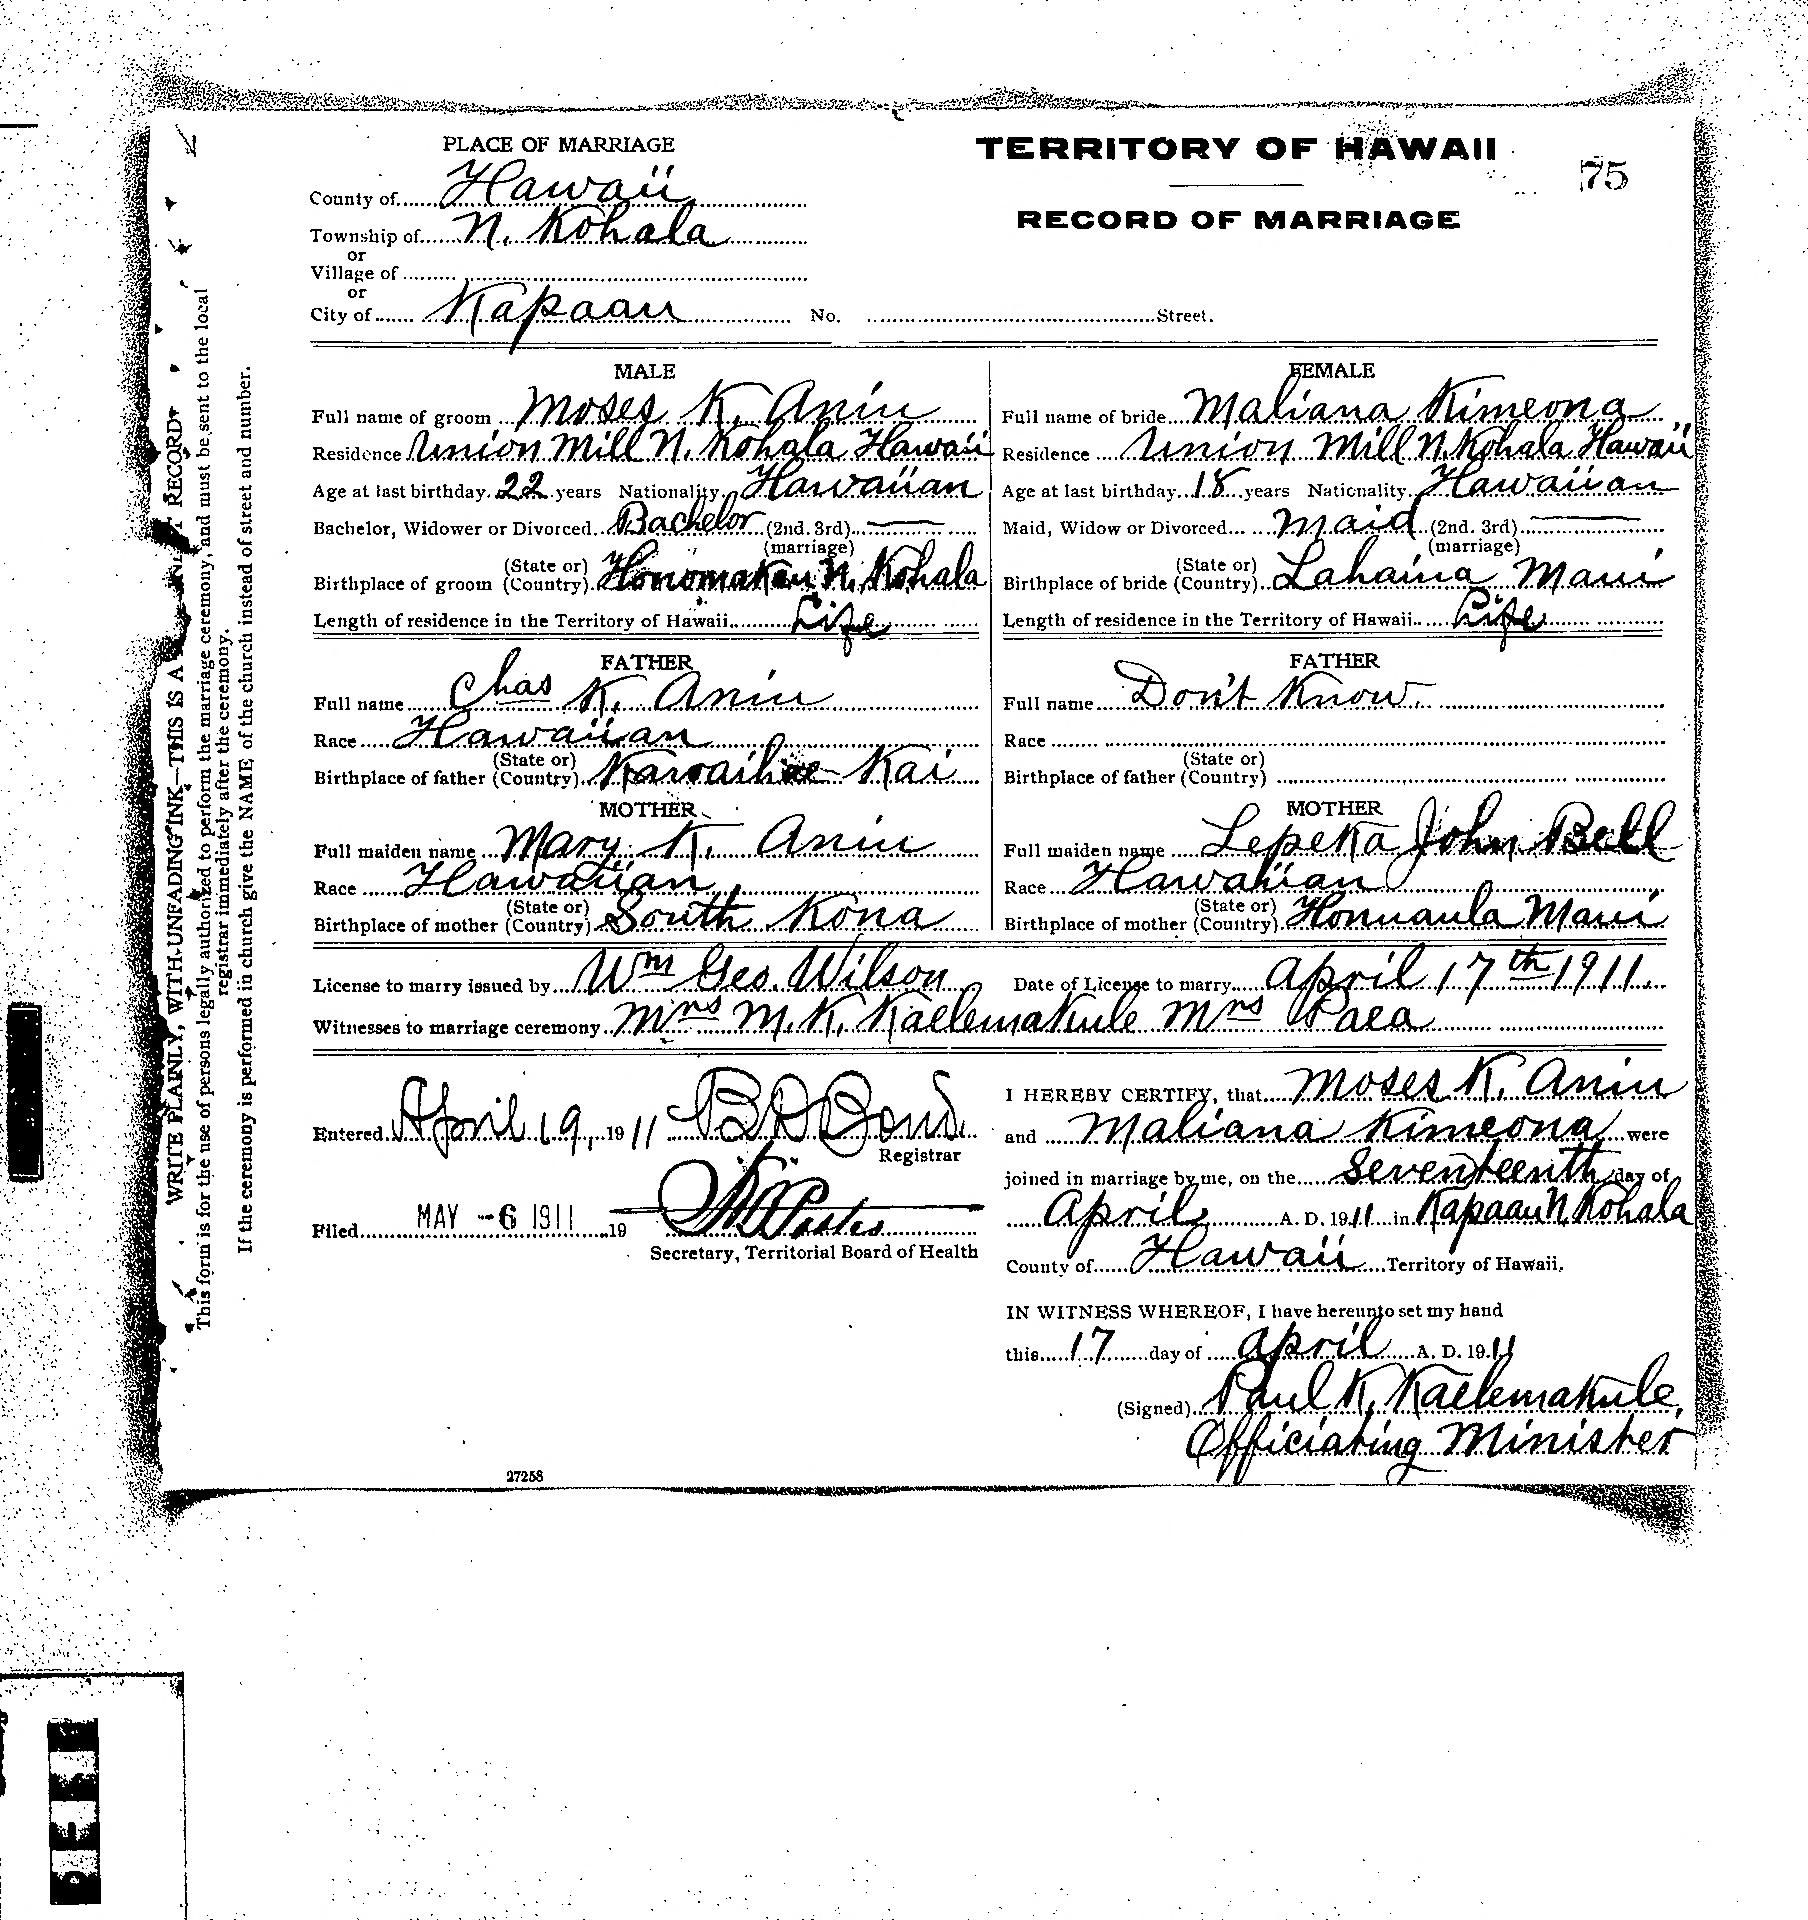 PLACE OF MARRIAGE
County of Hawaii
Township of N. Kohala
or
Village of
or
City of Kapaau No. Street.
TERRITORY OF HAWAII
75
RECORD OF MARRIAGE
MALE
Full name of groom Moses K. Aniu
Residence Union Mill N. Kohala Hawaii
Age at last birthday 22 years Nationality Hawaiian
Bachelor, Widower or Divorced Bachelor (2nd. 3rd)
(marriage)
(State or)
Birthplace of groom (Country) Honomakau N. Kohala
Length of residence in the Territory of Hawaii Life
FATHER
Full name Chas K. Aniu
Race Hawaiian
(State or)
Birthplace of father (Country) Kawaihae Kai
MOTHER
Full maiden name Mary K. Aniu
Race Hawaiian
(State or)
Birthplace of mother (Country) South Kona
FEMALE
Full name of bride Maliana Kimeona
Residence Union Mill N. Kohala Hawaii
Age at last birthday 18 years Nationality Hawaiian
Maid, Widow or Divorced Maid (2nd. 3rd)
(marriage)
(State or)
Birthplace of bride (Country) Lahaina Maui
Length of residence in the Territory of Hawaii Life
FATHER
Full name Don't Know.
Race
(State or)
Birthplace of father (Country)
MOTHER
Full maiden name Lepeka John Bell
Race Hawaiian
(State or)
Birthplace of mother (Country) Honuaula Maui
License to marry issued by Wm Geo. Wilson Date of License to marry April 17th 1911.
Witnesses to marriage ceremony Mrs M. K. Kaelemakule Mrs Paea
Entered April 19, 1911 B D Bond
Registrar
Filed MAY -6 1911 19
Secretary, Territorial Board of Health
I HEREBY CERTIFY, that Moses K. Aniu
and Maliana Kimeona were
joined in marriage by me, on the Seventeenth day of
April A. D. 1911 in Kapaau N. Kohala
County of Hawaii Territory of Hawaii.
IN WITNESS WHEREOF, I have hereunto set my hand
this 17 day of April A. D. 1911
(Signed) Paul K. Kaelemakule,
Officiating Minister
27258
WRITE PLAINLY, WITH UNFADING INK—THIS IS A RECORD
This form is for the use of persons legally authorized to perform the marriage ceremony, and must be sent to the local
registrar immediately after the ceremony.
If the ceremony is performed in church give the NAME of the church instead of street and number.